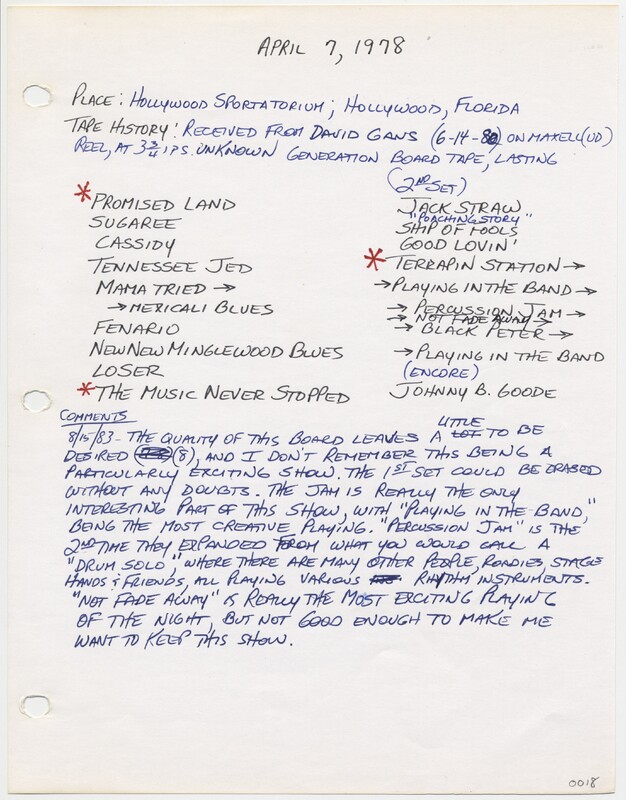 APRIL 7, 1978
PLACE: HOLLYWOOD SPORTATORIUM; HOLLYWOOD, FLORIDA
TAPE HISTORY: RECEIVED FROM DAVID GANS (6-14-80) ON MAXELL (UD)
REEL, AT 3 3/4 IPS. UNKNOWN GENERATION BOARD TAPE, LASTING
*PROMISED LAND
SUGAREE
CASSIDY
TENNESSEE JED
MAMA TRIED →
→ MEXICALI BLUES
FENARIO
NEW NEW MINGLEWOOD BLUES
LOSER
*THE MUSIC NEVER STOPPED
(2ND SET)
JACK STRAW
"POACHING STORY"
SHIP OF FOOLS
GOOD LOVIN'
*TERRAPIN STATION →
→ PLAYING IN THE BAND →
→ PERCUSSION JAM →
→ NOT FADE AWAY →
→ BLACK PETER →
→ PLAYING IN THE BAND
(ENCORE)
JOHNNY B. GOODE
COMMENTS
8/15/83 - THE QUALITY OF THIS BOARD LEAVES A LITTLE TO BE
DESIRED (8), AND I DON'T REMEMBER THIS BEING A
PARTICULARLY EXCITING SHOW. THE 1ST SET COULD BE ERASED
WITHOUT ANY DOUBTS. THE JAM IS REALLY THE ONLY
INTERESTING PART OF THIS SHOW, WITH "PLAYING IN THE BAND,"
BEING THE MOST CREATIVE PLAYING. "PERCUSSION JAM" IS THE
2ND TIME THEY EXPANDED FROM WHAT YOU WOULD CALL A
"DRUM SOLO," WHERE THERE ARE MANY OTHER PEOPLE, ROADIES, STAGE
HANDS & FRIENDS, ALL PLAYING VARIOUS RHYTHM INSTRUMENTS.
"NOT FADE AWAY" IS REALLY THE MOST EXCITING PLAYING
OF THE NIGHT, BUT NOT GOOD ENOUGH TO MAKE ME
WANT TO KEEP THIS SHOW.
0018